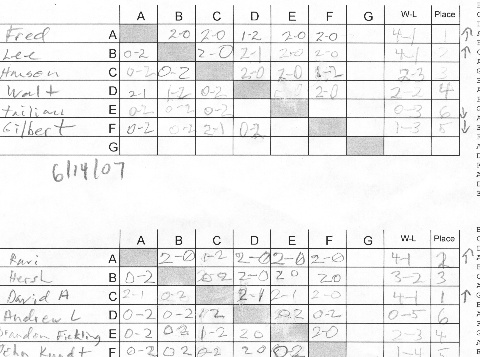 A B C D E F G W-L Place
Fred A 2-0 2-0 1-2 2-0 2-0 4-1 1
Lee B 0-2 2-0 2-1 2-0 2-0 4-1 2
Hansen C 0-2 0-2 2-0 2-0 1-2 2-3 3
Walt D 2-1 1-2 0-2 2-0 2-2 4
E 0-2 0-2 0-2 0-3 6
Gilbert F 0-2 0-2 2-1 0-2 1-3 5
G
6/14/07
A B C D E F G W-L Place
Ravi A 2-0 1-2 2-0 2-0 2-0 4-1 2
Hersh B 0-2 0-2 2-0 20 20 3-2 3
David A C 2-1 0-2 2-1 2-1 2-0 4-1 1
Andrew L D 0-2 0-2 1-2 0-2 02 0-5 6
Brandon E 0-2 02 1-2 20 2-0 2-3 4
John F 0-2 02 0-2 20 0-2 1-4 5